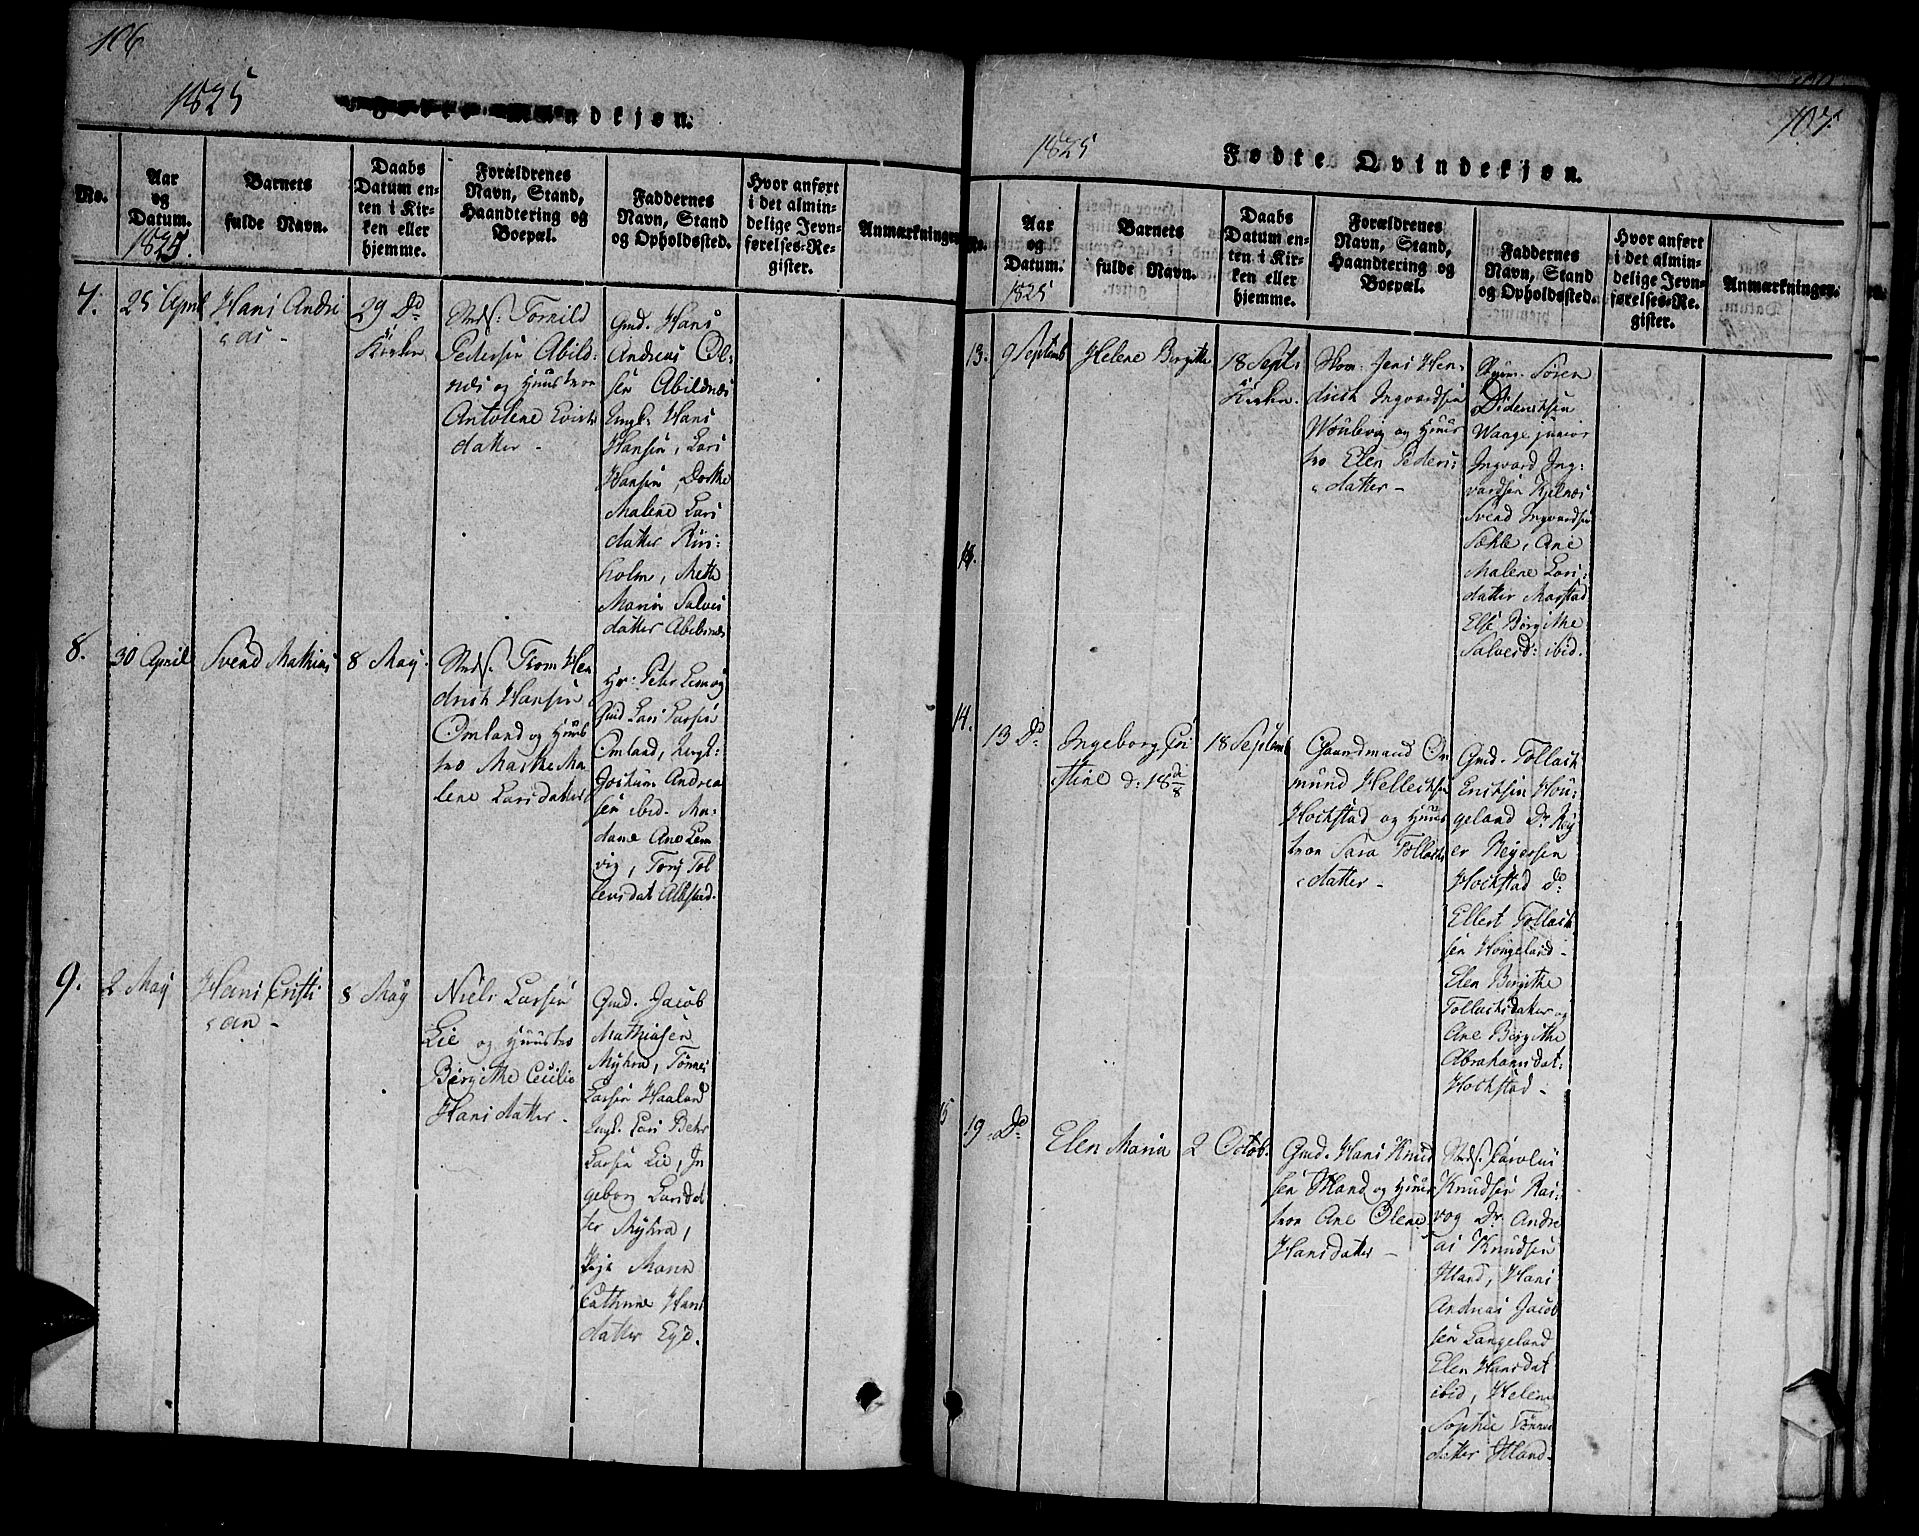 106
1825
ndkjøn.
No.
Aar
og
Datum.
1825.
Barnets
fulde Navn.
Daabs
Datum en-
ten i Kir-
ken eller
hjemme.
Forældrenes
Navn, Stand,
Haandtering og
Boepæl.
Faddernes
Navn, Stand
og Opholdssted.
Hvor anført
i det almin-
delige Jevn-
førelses-Re-
gister.
Anmærkninger
7.
25 April
Hans Andre
as -
29 Do
Kirken
Tornild
Pedersen Abild-
nes og Huustroe
Antolene
datter -
Gmd. Hans
Andreas Ol-
sen Abildnes
Ungk. Hans
Hansen, Lars
Hansen, Dorthe
Malene Lars
datter
holm, Mette
Maria Salves
datter Abildnes
8.
30 April
Svend Mathias
8 May.
Trom Hen
drich Hansen
Omland og Huus
tro Marthe Ma
lene Larsdatter
Hr: Peter Lemvig
Gmd Lars Larsen
Omland, Ungk:
Jochum Andrea
sen ibid. Ma-
dame Ane Lem
vig, Torj Tol
levsdat Albstad.
9.
2 May
Hans Cristi
an -
8 May
Niels Larsen
Lie og Huustro
Birgithe Cecilie
Hansdatter -
Gmd. Jacob
Mathiasen
Myhra, Tønnes
Larsen Haaland
Ungk. Lars Behr
Larsen Lie, In
geborg Larsdat
ter Myhra,
Pige Maria
Cathrine Hans
datter Egd.
107.
1825
Fødte Qvindekjøn.
No.
Aar
og
Datum.
1825
Barnets
fulde Navn.
Daabs
Datum en-
ten i Kir-
ken eller
hjemme.
Forældrenes
Navn, Stand,
Haandtering og
Boepæl.
Faddernes
Navn, Stand
og Opholdssted.
Hvor anført
i det almin-
delige Jevn-
førelses-Re-
gister.
Anmærkninger.
13.
9 Septemb
Helene Birgitte
18 Sept.
Kirken.
Jens Hen-
drich Ingvardsen
og Huus
tro Elen Peders
datter -
Søren
Didericksen
Wange junior
Ingvard Ing-
vardsen Kjelnæs
Svend Ingvardsen
Sæhle, Ane
Malene Lars-
datter Marstad
Else Birgithe
Salvesd: ibid.
14.
13 Do
Ingeborg Cri
stine d. 18
18 Septemb
Gaardmand Om
mund Hellecksen
Hochstad og Huus
troe Sara Tollachs
datter -
Gmd. Tollach
Erichsen Hou-
geland Do Rey
er Reyersen
Hochstad Do
Ellert Tollach
sen Hougeland -
Elen Birgithe
Tollachsdatter og
Ane Birgithe
Abrahamsdat:
Hochstad -
15
19 Do
Elen Maria
2 Octob.
Gmd. Hans Knud
sen Øland og Huus
troe Ane Olene
Hansdatter -
Carolus
Knudsen Ras-
vog Do Andre
as Knudsen
Hans
Andreas Jacob
sen Langeland
Elen Hansdat
ibid, Helene
Sophie Tønnes
datter